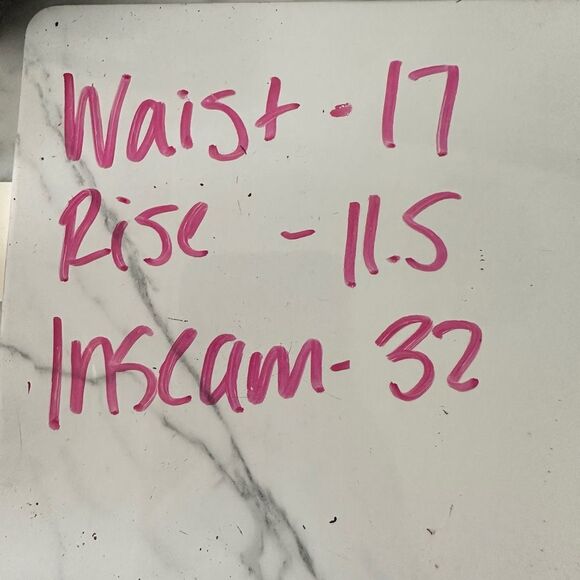 Waist - 17
Rise - 11.5
Inseam - 32